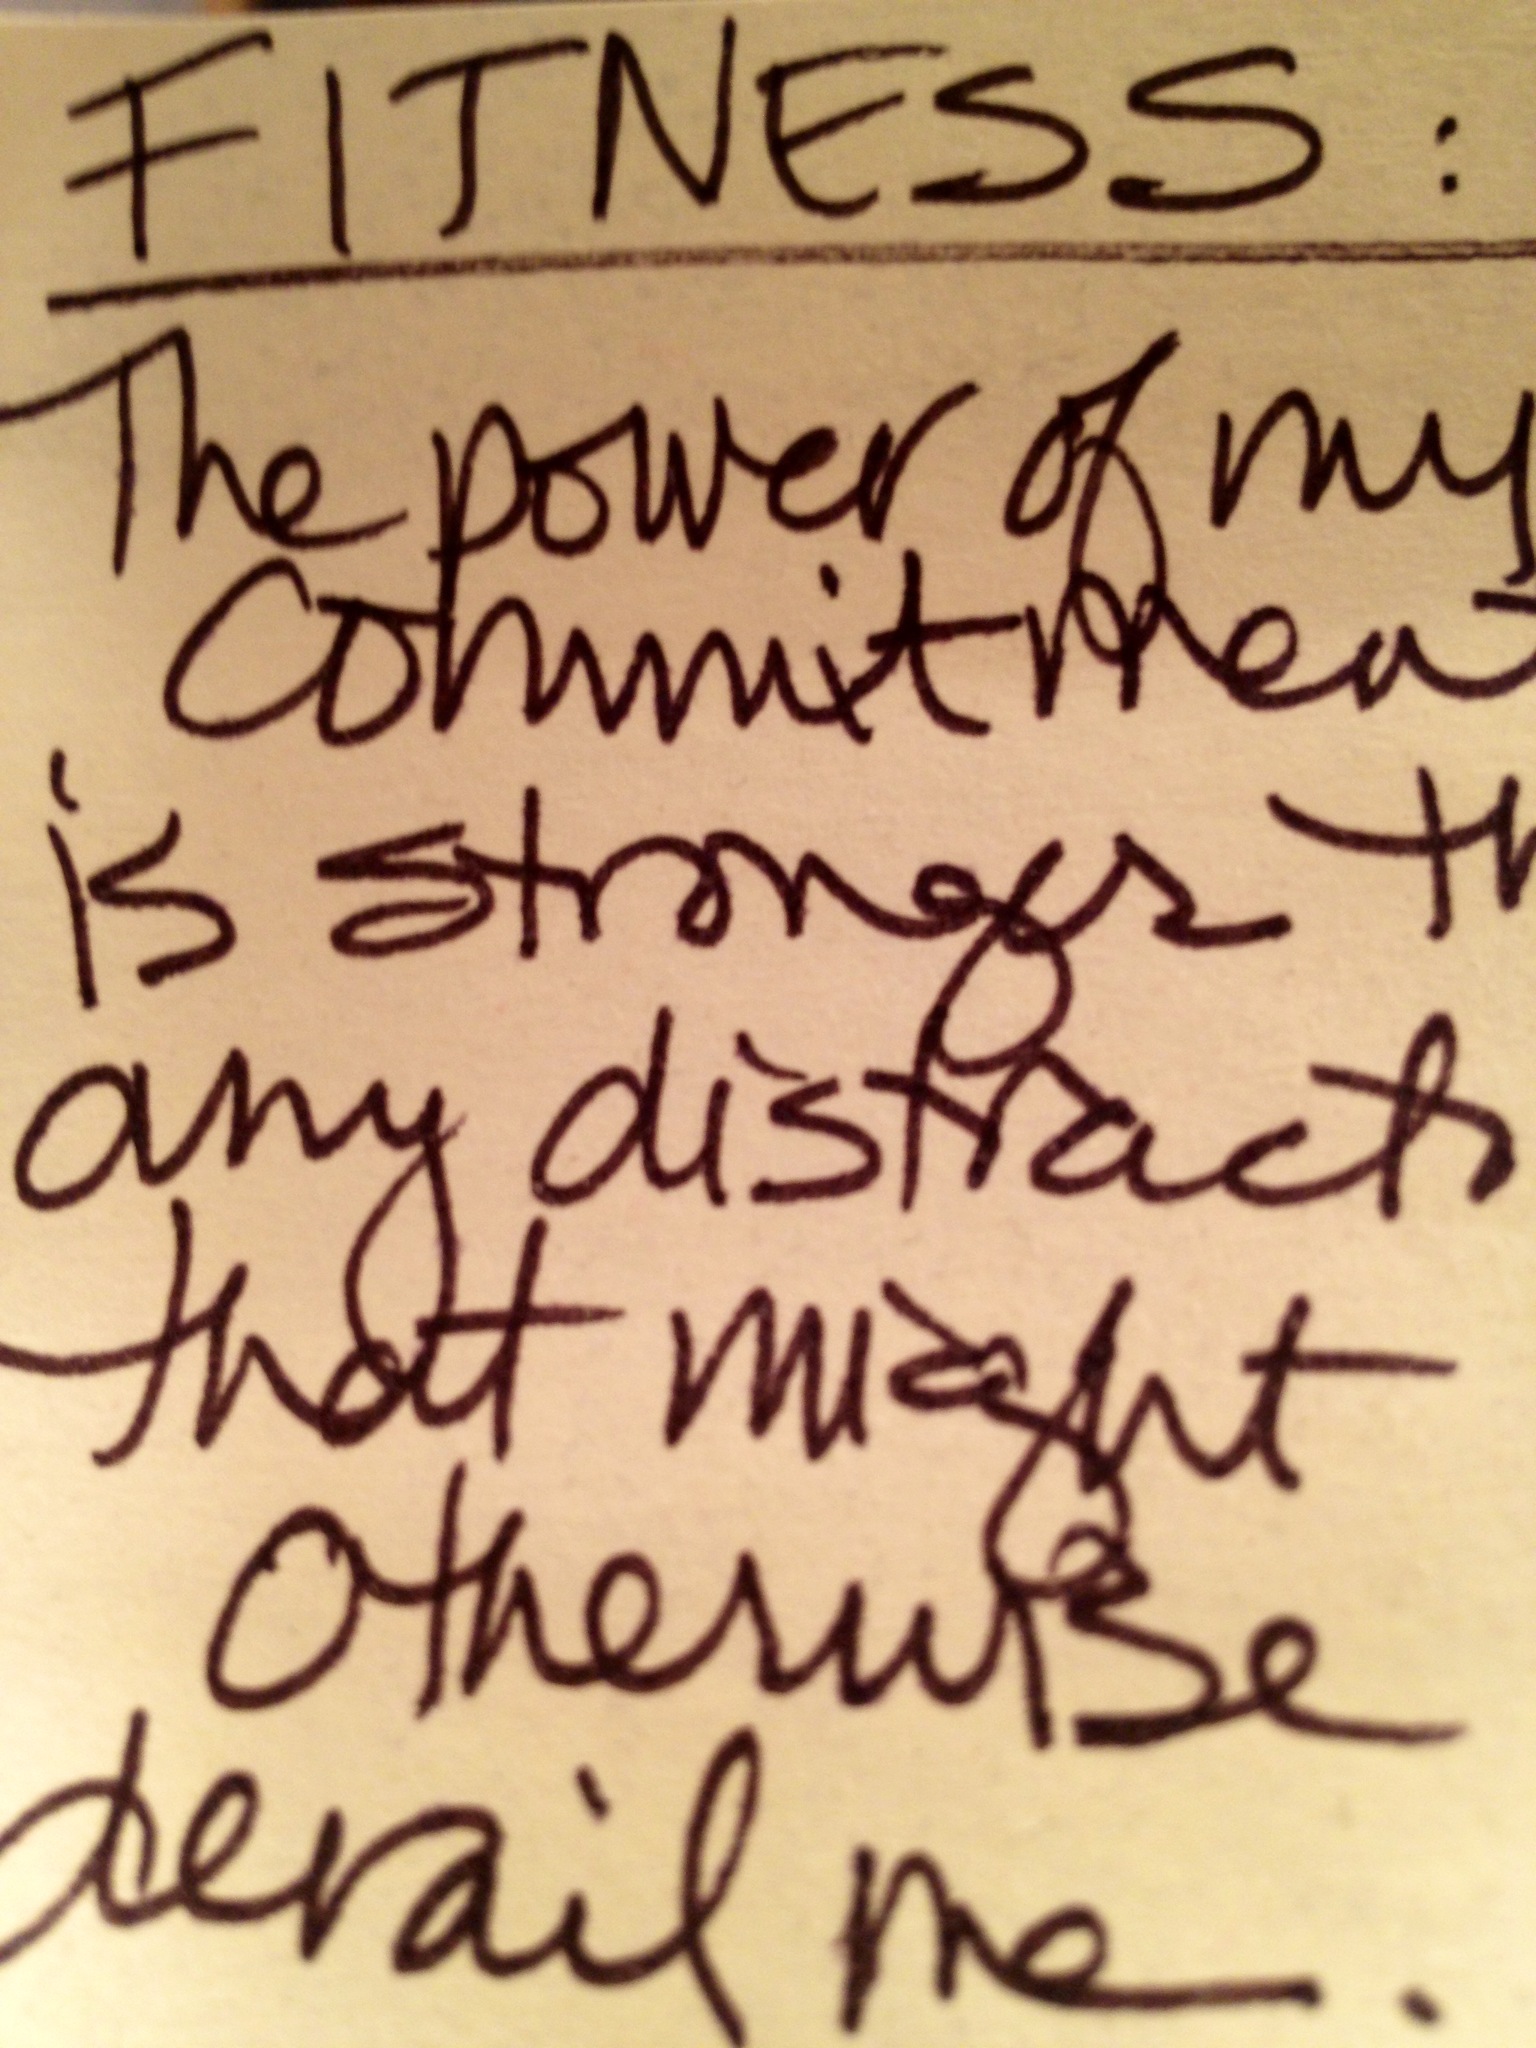 FITNESS:
The power of my
Commitment
is stronger th
any distracti
that might
otherwise
derail me.